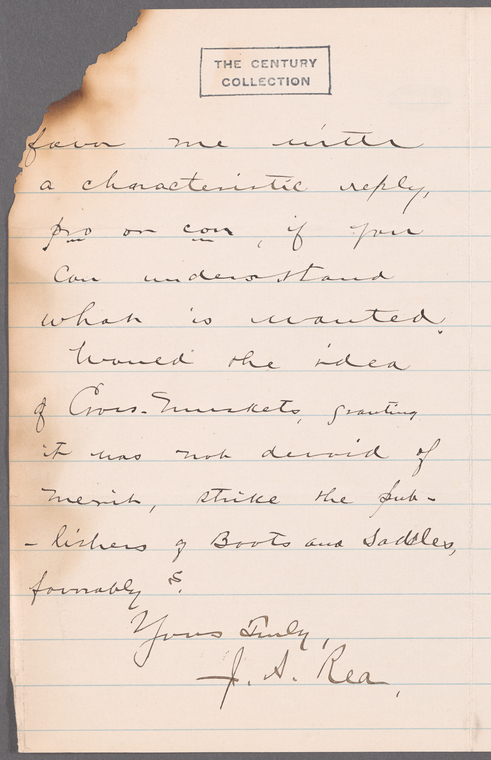 THE CENTURY
COLLECTION
favor me with
a characteristic reply,
pro or con, if you
can understand
what is wanted.
Would the idea
of Cross-Muskets, granting
it was not devoid of
merit, strike the pub-
-lishers of Boots and Saddles,
favorably?
Yours Truly,
J. A. Rea,